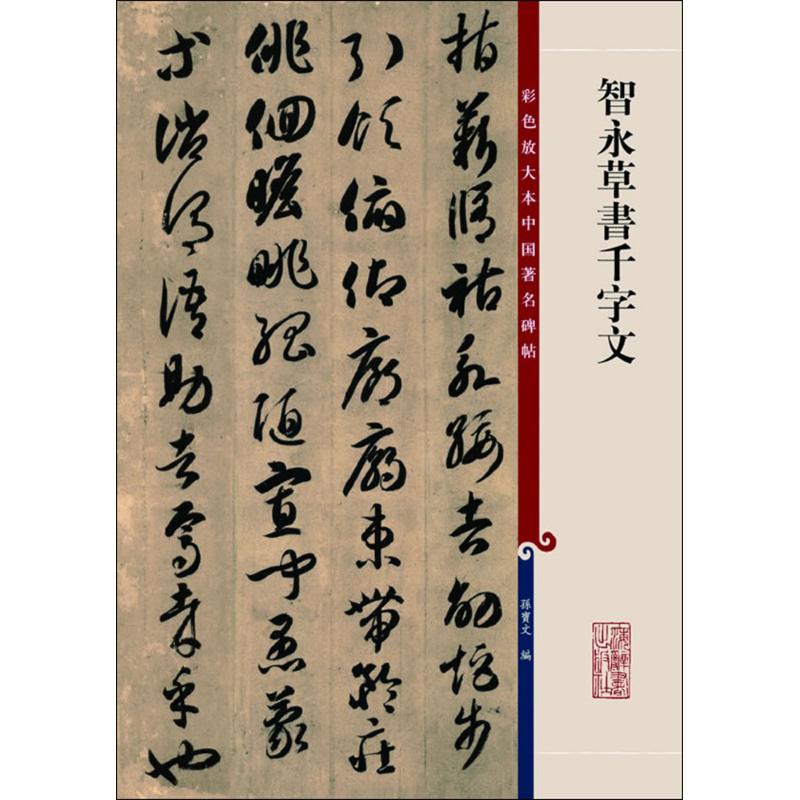 智永草書千字文
彩色放大本中国著名碑帖
孫寶文 編
上海辭書出版社
指薪脩祜永綏吉劭矩步
引領俯仰廊廟束帶矜莊
徘徊瞻眺孤陋寡聞愚蒙
等誚謂語助者焉哉乎也